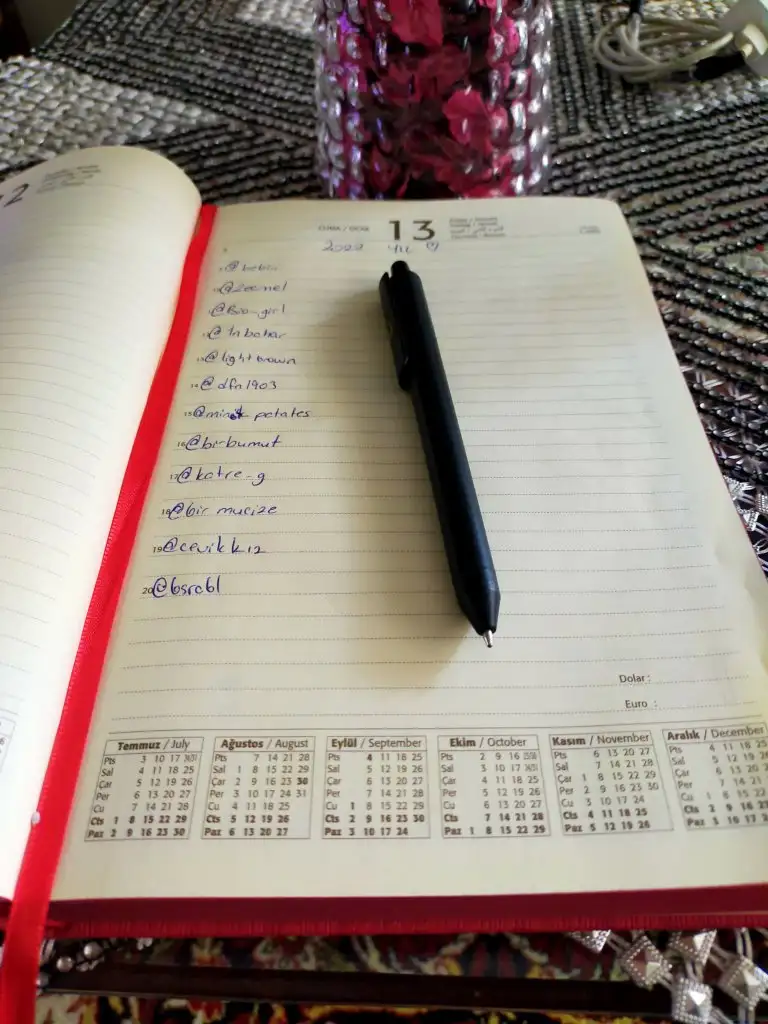 12
CUMA / OCAK
13
2022 YIL ♡
@bebis
@Zeenel
@Bio-girl
@1nbahar
@light brown
14 @dfn1903
15 @minik petates
16 @birbumut
17 @katre-g
18 @bir mucize
19 @cevikk12
20 @bsrcbl
Dolar :
Euro :
Temmuz / July
Pts 3 10 17 24/31
Sal 4 11 18 25
Çar 5 12 19 26
Per 6 13 20 27
Cu 7 14 21 28
Cts 1 8 15 22 29
Paz 2 9 16 23 30
Ağustos / August
Pts 7 14 21 28
Sal 1 8 15 22 29
Çar 2 9 16 23 30
Per 3 10 17 24 31
Cu 4 11 18 25
Cts 5 12 19 26
Paz 6 13 20 27
Eylül / September
Pts 4 11 18 25
Sal 5 12 19 26
Çar 6 13 20 27
Per 7 14 21 28
Cu 1 8 15 22 29
Cts 2 9 16 23 30
Paz 3 10 17 24
Ekim / October
Pts 2 9 16 23/30
Sal 3 10 17 24/31
Çar 4 11 18 25
Per 5 12 19 26
Cu 6 13 20 27
Cts 7 14 21 28
Paz 1 8 15 22 29
Kasım / November
Pts 6 13 20 27
Sal 7 14 21 28
Çar 1 8 15 22 29
Per 2 9 16 23 30
Cu 3 10 17 24
Cts 4 11 18 25
Paz 5 12 19 26
Aralık / December
Pts 4 11 18 25
Sal 5 12 19 26
Çar 6 13 20 2
Per 7 14 21 2
Cu 1 8 15 22
Cts 2 9 16 2
Paz 3 10 17 2